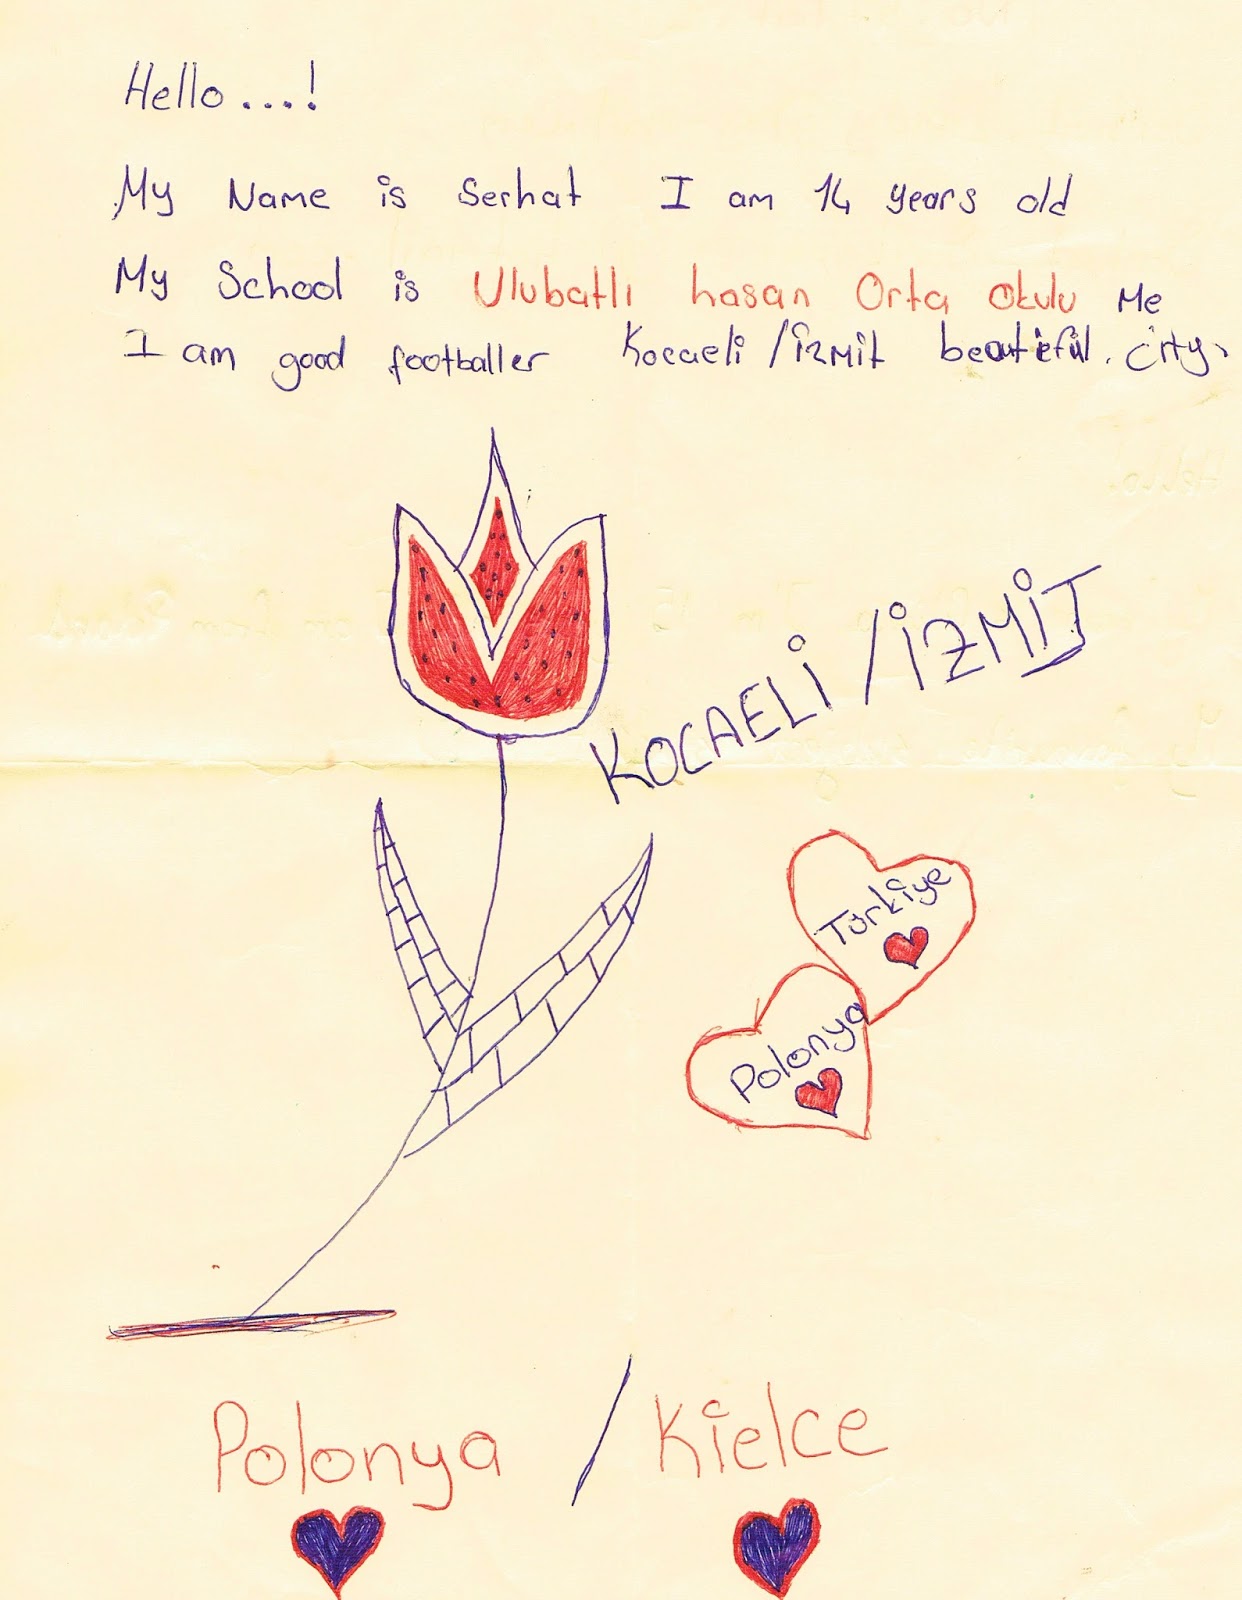 Hello....!
My Name is Serhat I am 14 years old
My School is Ulubatlı hasan Orta Okulu Me
I am good footballer Kocaeli /İzmit beautiful. city.
KOCAELİ /İZMİT
Türkiye
Polonya
Polonya / Kielce